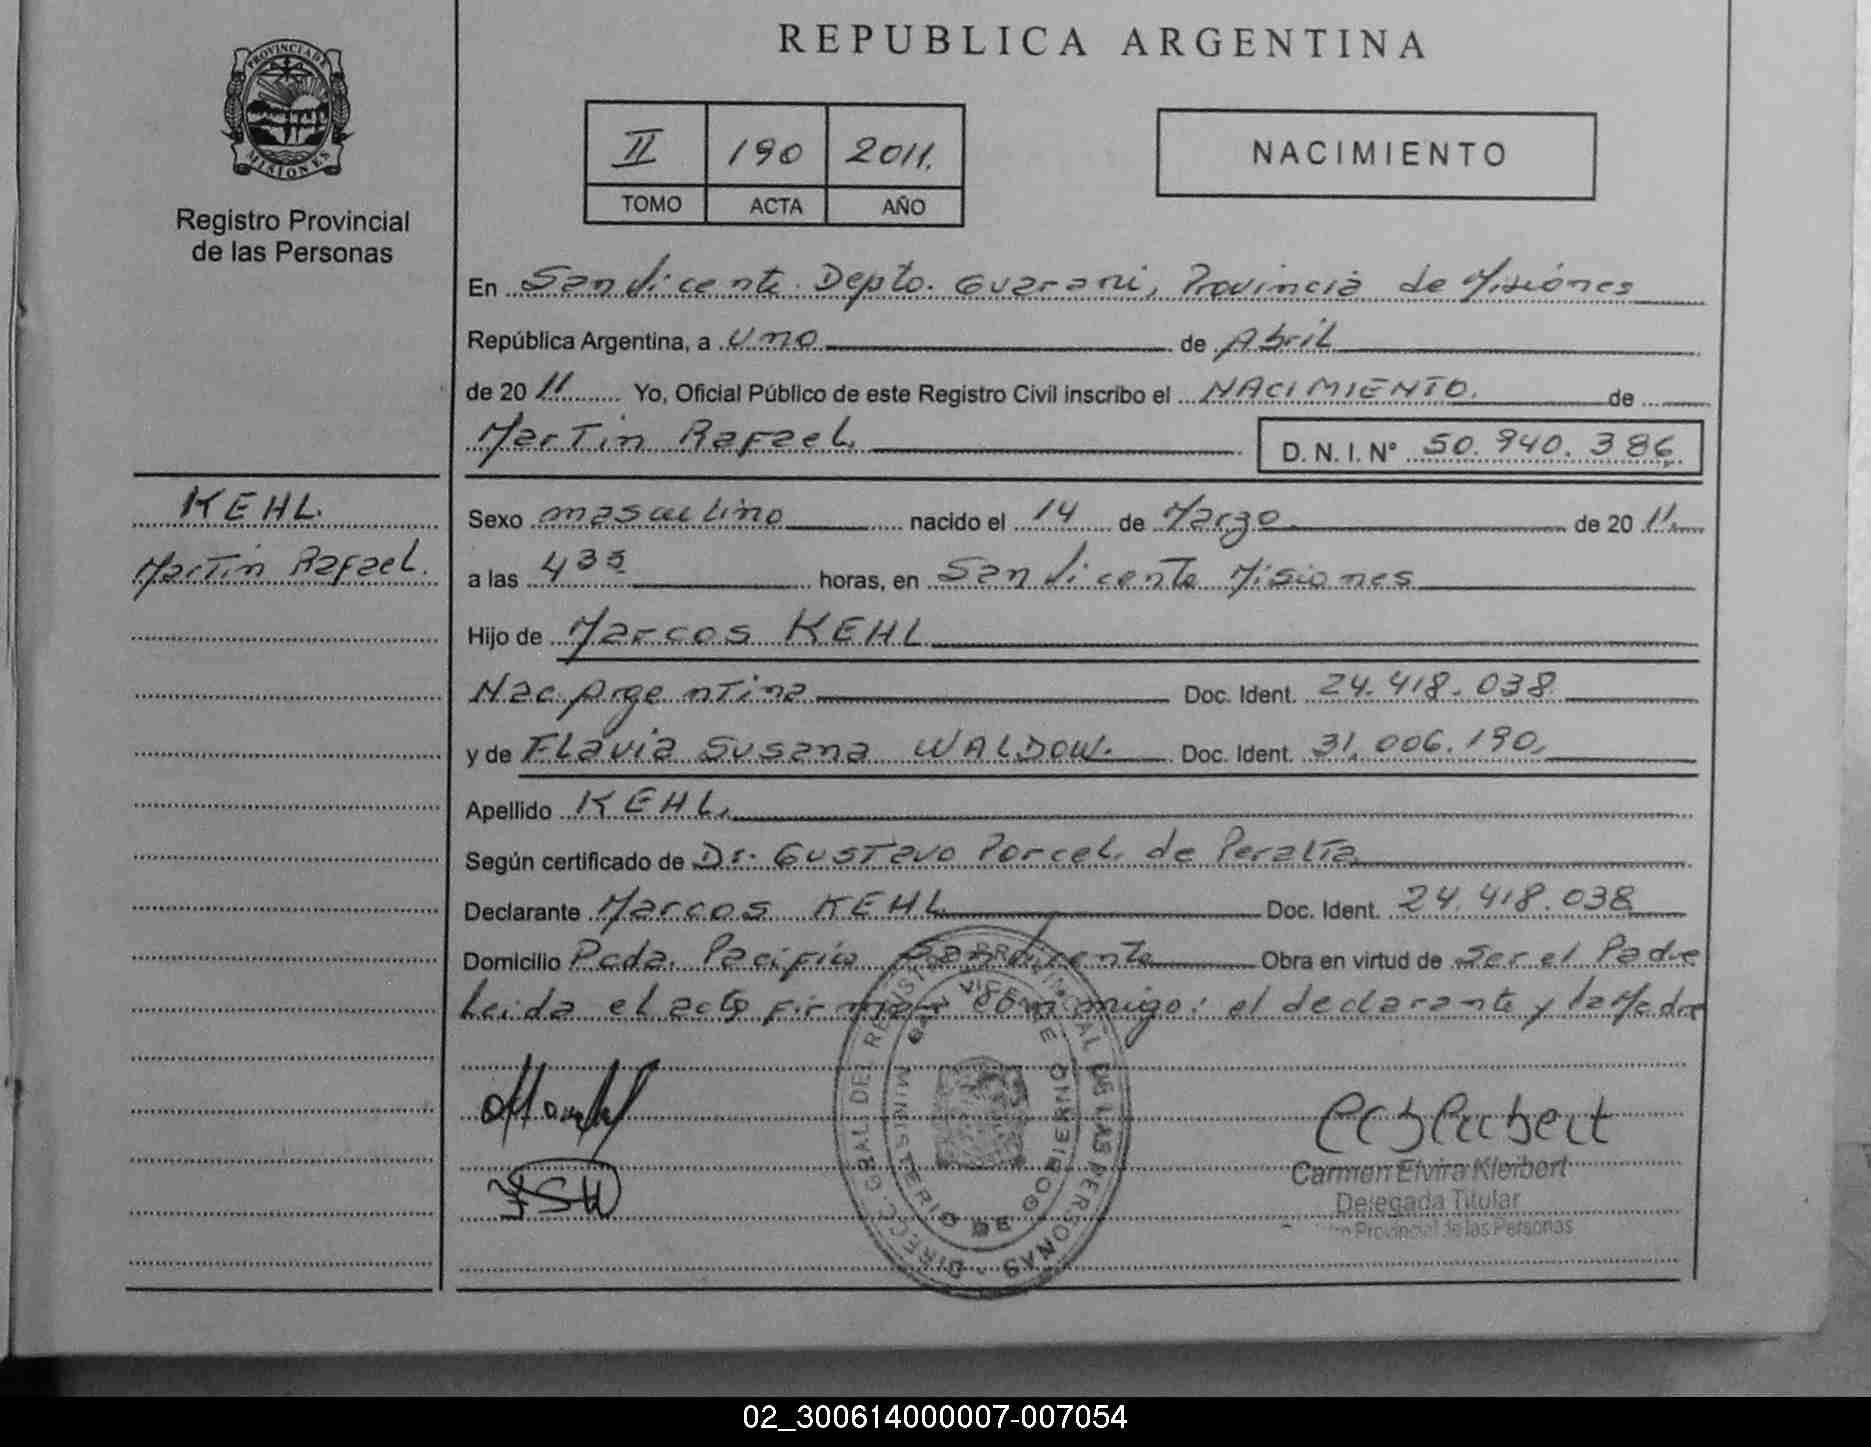 PROVINCIA DE
MISIONES
Registro Provincial
de las Personas
KEHL.
Martin Rafael.
REPUBLICA ARGENTINA
II 190 2011.
TOMO ACTA AÑO
NACIMIENTO
En San Vicente Depto. Guarani, Provincia de Misiones
República Argentina, a uno de Abril
de 2011 Yo, Oficial Público de este Registro Civil inscribo el NACIMIENTO. de
Martin Rafael. D. N. I. Nº 50.940.386.
Sexo masculino nacido el 14 de Marzo de 2011.
a las 4 35 horas, en San Vicente Misiones
Hijo de Marcos KEHL
Nac. Argentina Doc. Ident. 24.418.038
y de Flavia Susana WALDOW. Doc. Ident. 31.006.190.
Apellido KEHL.
Según certificado de Dr. Gustavo Porcel de Peralta
Declarante Marcos KEHL Doc. Ident. 24.418.038
Domicilio Pcda. Pacifico San Vicente Obra en virtud de Ser el Padre
Leida el acta firman conmigo: el declarante y la Madre
DIRECC. GRAL DEL REGISTRO PROVINCIAL DE LAS PERSONAS
SAN VICENTE
MINISTERIO DE GOBIERNO
FSW
Carmen Elvira Kleibert
Delegada Titular
Provincial de las Personas
02_300614000007-007054